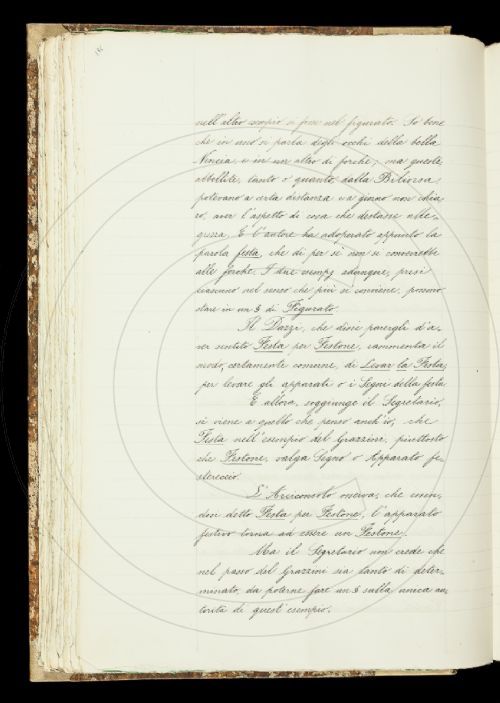 nell'altro esempio si fosse nel figurato. So bene
che in uno si parla degli occhi della bella
Nencia, e in un altro di forche; ma queste
abbellite, tanto o quanto, dalla
potevano a certa distanza e a giorno non chia-
ro, aver l'aspetto di cosa che destasse alle-
grezza. E l'autore ha adoperato appunto la
parola festa, che di per sè non si converrebbe
alle forche. I due esempj adunque, presi
ciascuno nel senso che più si conviene, possono
stare in un § di Figurato.
Il Dazzi, che dissi parergli d'a-
ver sentito Festa per Festone, rammenta il
modo, certamente comune, di Levar la Festa,
per levare gli apparati o i Segni della festa
E allora, soggiunge il Segretario,
si viene a quello che penso anch'io, che
Festa nell'esempio del Grazzini, piuttosto
che Festone, valga Segno o Apparato fe-
stereccio.
L'Arciconsolo osserva, che essen-
dosi detto Festa per Festone, l'apparato
festivo torna ad essere un Festone.
Ma il Segretario non crede che
nel passo del Grazzini sia tanto di deter-
minato, da poterne fare un § sulla unica au-
torità di quest'esempio.